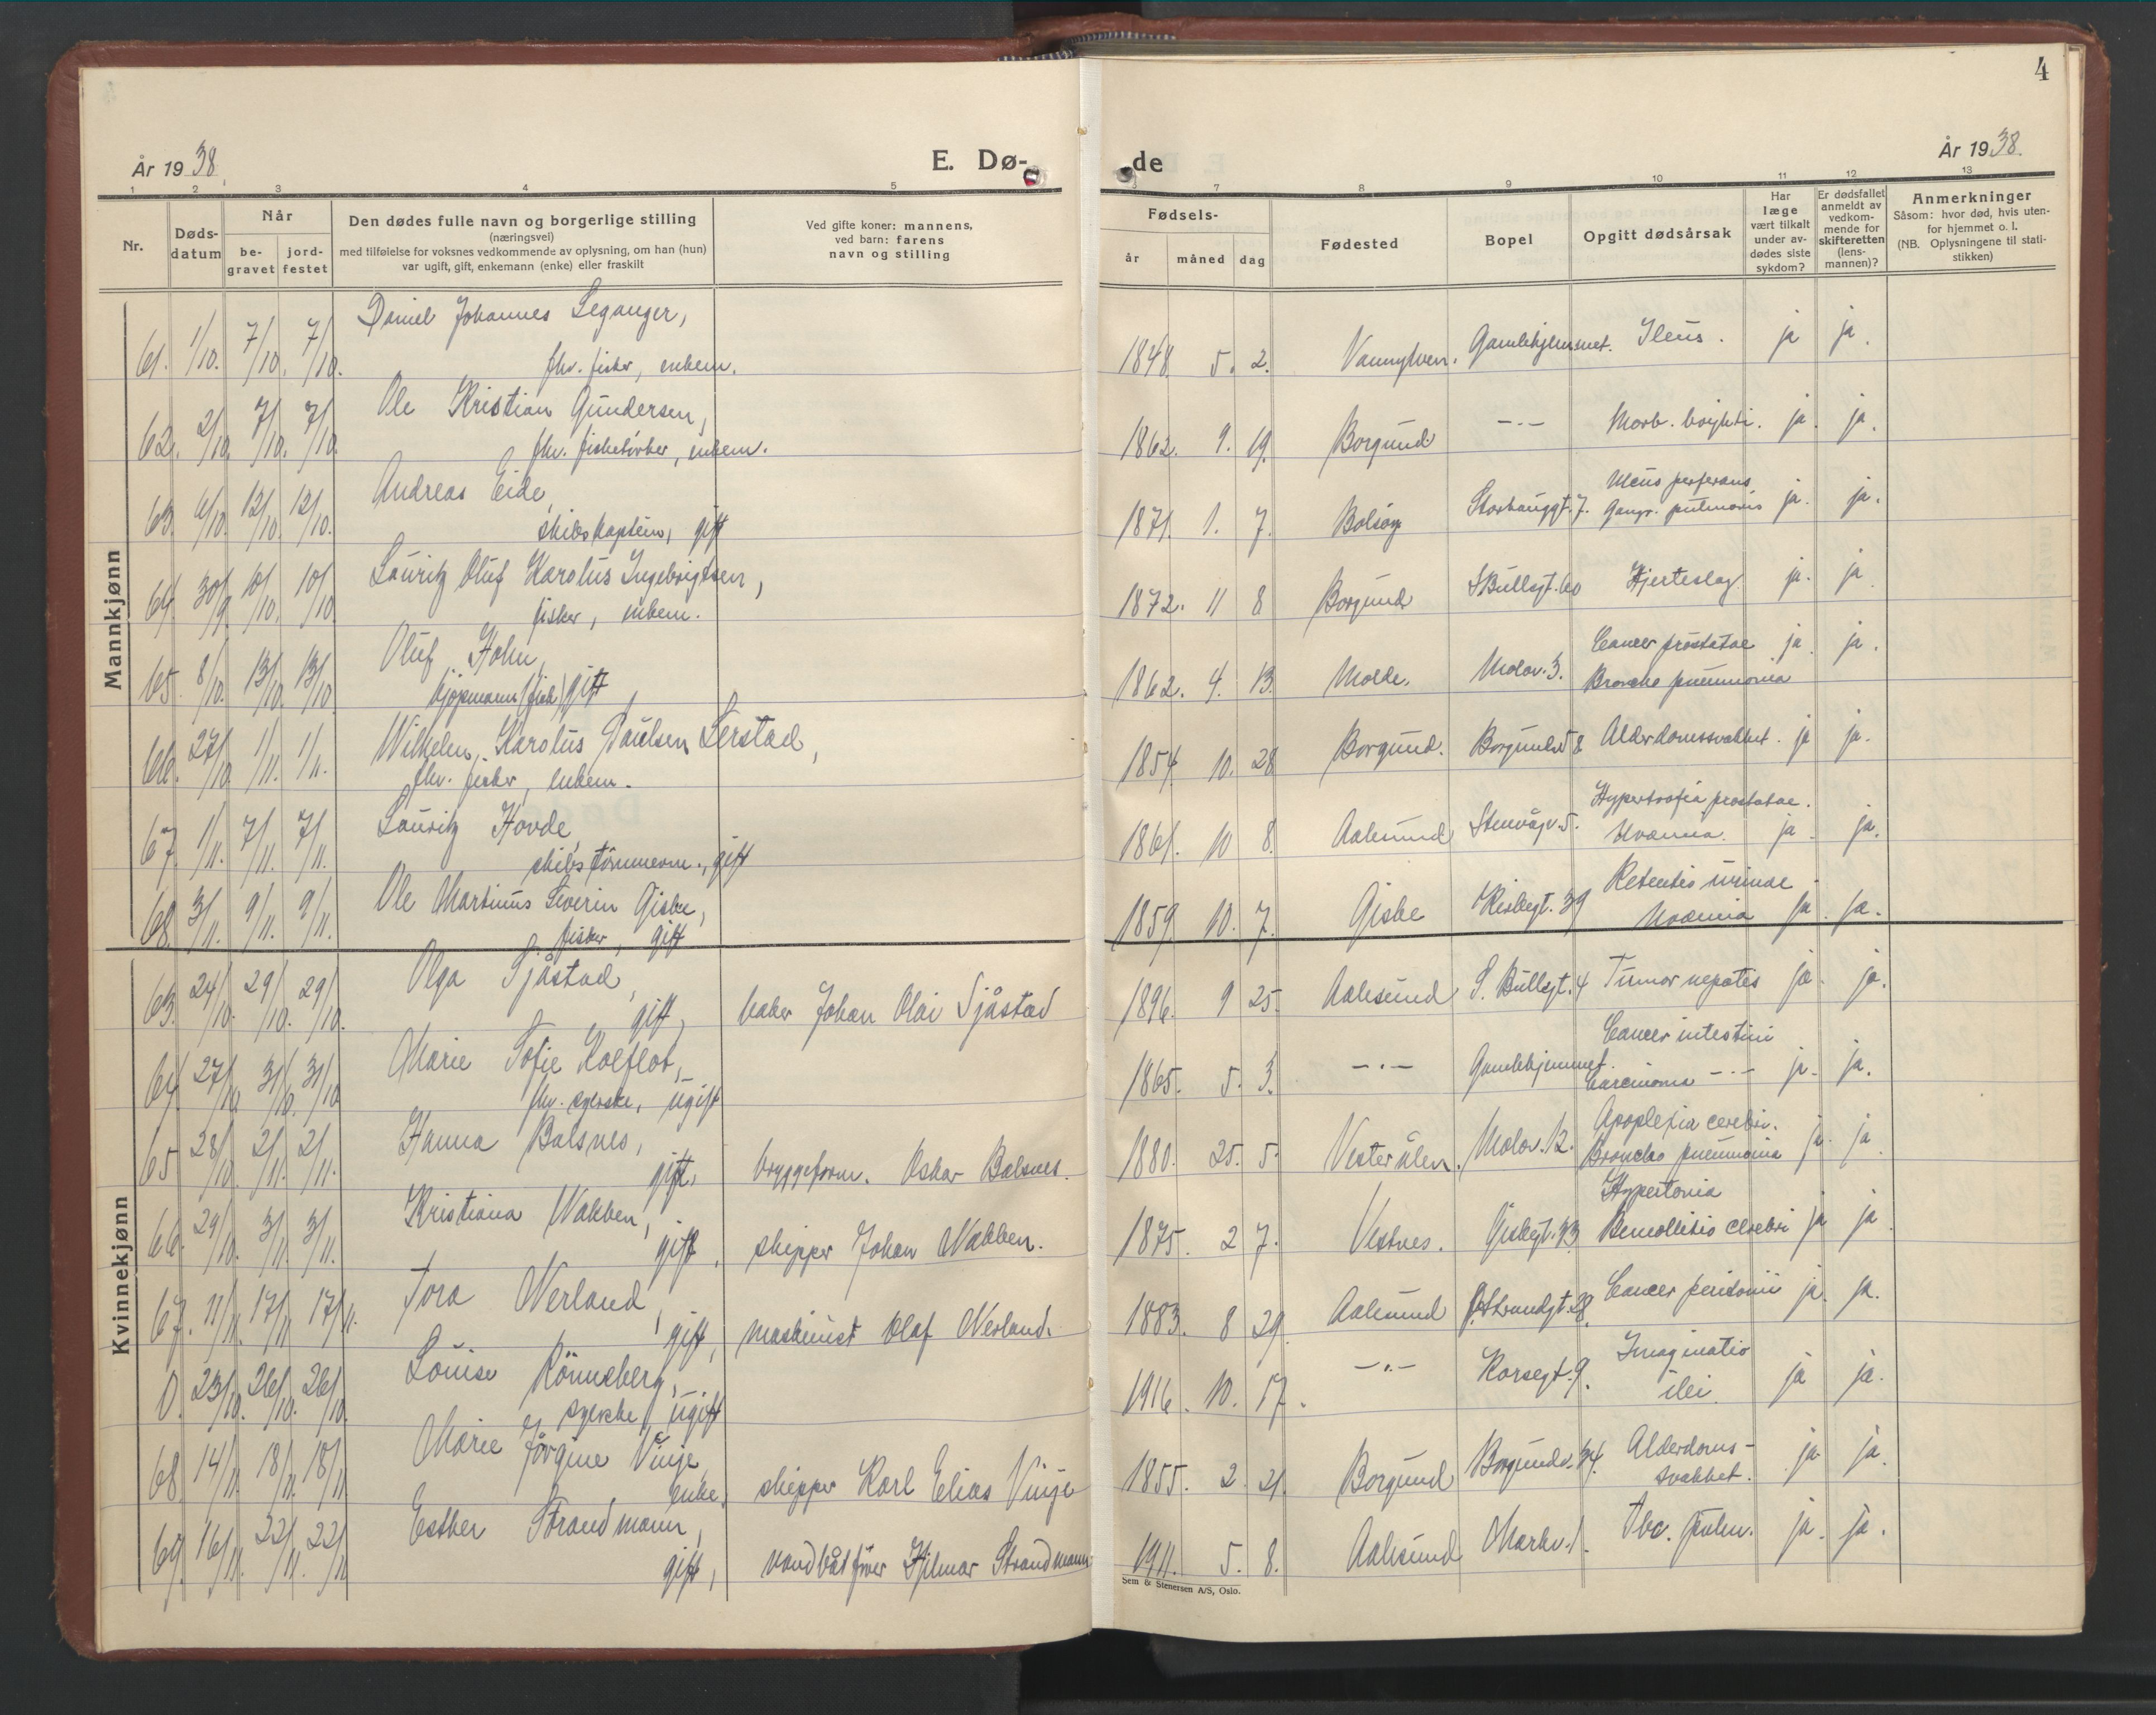 4
År 1938.
E. Dø-
de
År 1938.
1 2 3 4 5
7 8 9 10 11 12 13
Nr.
Døds-
datum
Når
be-
gravet
jord-
festet
Den dødes fulle navn og borgerlige stilling
(næringsvei)
med tilføielse for voksnes vedkommende av oplysning, om han (hun)
var ugift, gift, enkemann (enke) eller fraskilt
Ved gifte koner: mannens,
ved barn: farens
navn og stilling
Fødsels-
år måned dag
Fødested
Bopel
Opgitt dødsårsak
Har
læge
vært tilkalt
under av-
dødes siste
sykdom?
Er dødsfallet
anmeldt av
vedkom-
mende for
skifteretten
(lens-
mannen)?
Anmerkninger
Såsom: hvor død, hvis uten-
for hjemmet o. l.
(NB. Oplysningene til stati-
stikken)
Mannkjønn
61. 1/10. 7/10. 7/10. Daniel Johannes Leganger,
fhv. fisker, enkem.
1848. 5. 2. Vannylven. Gamlehjemmet. Ileus. ja ja.
62. 2/10. 7/10. 7/10. Ole Kristian Gundersen,
fhv. fisketørker, enkem.
1862. 9. 19. Borgund -"- Morb. brighti. ja. ja.
63. 6/10. 12/10. 12/10. Andreas Eide,
skibskaptein, gift
1871. 1. 7. Bolsøy Storhauggt. 7. Ulcus perforans
Gangr. pulmonis ja. ja.
64. 30/9. 10/10. 10/10 Lauritz Oluf Karolus Ingebrigtsen,
fisker, enkem.
1872. 11 8 Borgund S Bullsgt. 60 Hjerteslag. ja. ja.
65. 8/10. 13/10. 13/10. Oluf Holm,
kjøpmann (fisk) gift
1862. 4. 13. Molde. Molov. 3. Cancer prostatae ja. ja.
Broncho pneumonia
66. 27/10. 1/11. 1/11. Wilhelm Karolus Paulsen Lerstad,
fhv. fisker, enkem.
1854. 10. 28 Borgund. Borgundv. 58 Alderdomssvakhet. ja ja.
67. 1/11. 7/11. 7/11. Lauritz Hovde,
skibstømmerm., gift
1861. 10 8. Aalesund Stenvågv. 5. Hypertrofia prostatae.
Uræmia. ja. ja.
68. 3/11. 9/11. 9/11. Ole Martinus Severin Giske,
fisker, gift
1859. 10. 7. Giske Kirkegt. 39 Retentio urinae
Uræmia ja. ja.
Kvinnekjønn
63. 24/10. 29/10. 29/10. Olga Sjåstad,
gift, baker Johan Olai Sjåstad
1896. 9 25. Aalesund S. Bullsgt. 4 Tumor hepatis ja. ja.
64. 27/10. 31/10. 31/10 Marie Sofie Kolflot,
fhv. syerske, ugift
1865. 5. 3. -"- Gamlehjemmet. Cancer intestini
Carcinoma -"- ja. ja.
65 28/10. 2/11. 2/11. Hanna Balsnes,
gift, bryggeform. Oskar Balsnes.
1880. 25. 5. Vesterålen. Molov. 12. Apoplexia cerebri.
Broncho pneumonia ja. ja.
66. 29/10. 3/11. 3/11. Kristiana Nakken,
gift, skipper Johan Nakken.
1875. 2 7. Vestnes. Giskegt. 43 Hypertonia
Remollitio cerebri ja ja.
67. 11/11. 17/11 17/11. Tora Nerland,
gift, maskinist Olaf Nerland.
1883. 8 29. Aalesund Ø. Strandgt. 28. Cancer peritonii ja. ja.
0. 23/10. 26/10. 26/10. Louise Rønneberg,
syerske, ugift
1916. 10. 17. -"- Korsegt. 9. Invaginatio
ilei. ja ja.
68 14/11. 18/11. 18/11 Marie Jørgine Vinje,
enke, skipper Karl Elias Vinje
1855. 2. 21. Borgund Borgundv. 34. Alderdoms-
svakhet. ja ja.
69. 16/11. 22/11. 22/11 Esther Strandmann,
gift, vandbåtfører Hjilmar Strandmann
1911. 5. 8. Aalesund Markv. 1. Tbc. pulm. ja. ja.
Sem & Stenersen A/S, Oslo.